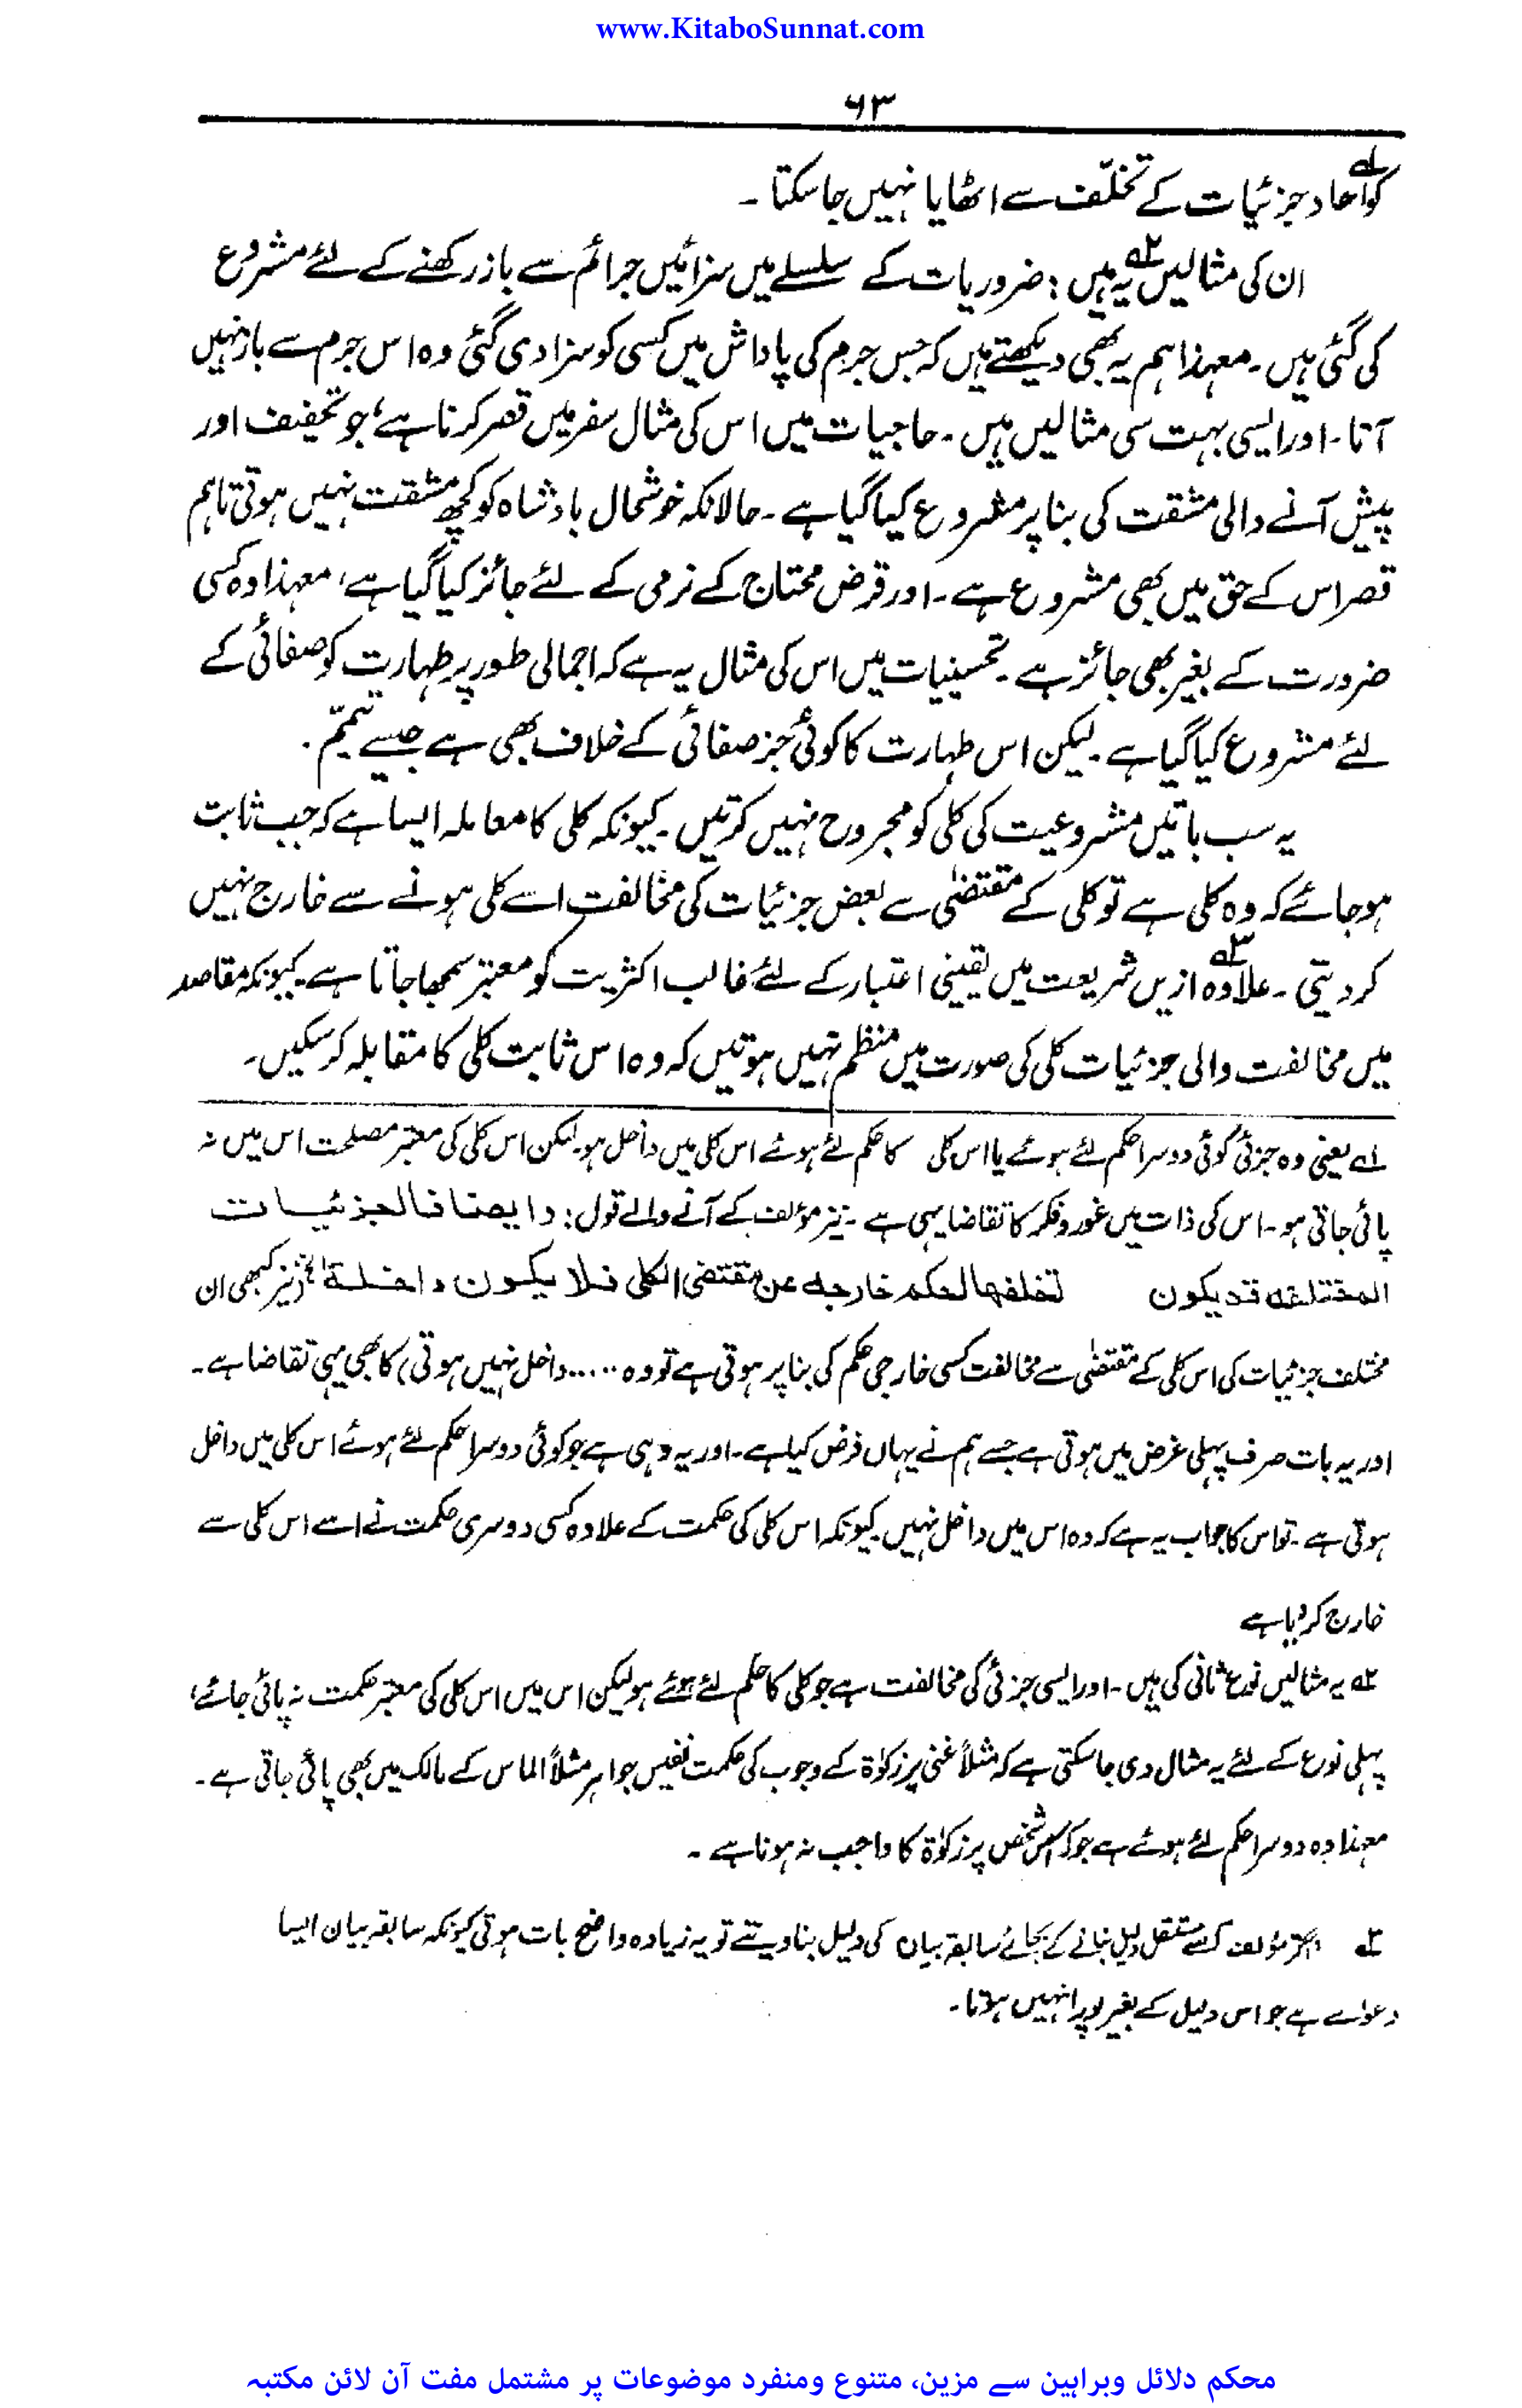 www.KitaboSunnat.com
۶۳
کو احاد جزئیات کے تخلّف سے اٹھایا نہیں جاسکتا۔ ۱؎
ان کی مثالیں ۲؎ یہ ہیں: ضروریات کے سلسلے میں سزائیں جرائم سے باز رکھنے کے لئے مشروع
کی گئی ہیں۔ معہذا ہم یہ بھی دیکھتے ہیں کہ جس جرم کی پاداش میں کسی کو سزا دی گئی وہ اس جرم سے باز نہیں
آتا۔ اور ایسی بہت سی مثالیں ہیں۔ حاجیات میں اس کی مثال سفر میں قصر کرنا ہے، جو تخفیف اور
پیش آنے والی مشقت کی بنا پر مشروع کیا گیا ہے۔ حالانکہ خوشحال بادشاہ کو کچھ مشقت نہیں ہوتی تاہم
قصر اس کے حق میں بھی مشروع ہے۔ اور قرض محتاج کے نرمی کے لئے جائز کیا گیا ہے، معہذا وہ کسی
ضرورت کے بغیر بھی جائز ہے۔ تحسینیات میں اس کی مثال یہ ہے کہ اجمالی طور پر طہارت کو صفائی کے
لئے مشروع کیا گیا ہے۔ لیکن اس طہارت کا کوئی جز صفائی کے خلاف بھی ہے جیسے تیمّم۔
یہ سب باتیں مشروعیت کی کلی کو مجروح نہیں کرتیں۔ کیونکہ کلی کا معاملہ ایسا ہے کہ جب ثابت
ہوجائے کہ وہ کلی ہے تو کلی کے مقتضٰی سے بعض جزئیات کی مخالفت اسے کلی ہونے سے خارج نہیں
کردیتی۔ علاوہ ۳؎ ازیں شریعت میں یقینی اعتبار کے لئے غالب اکثریت کو معتبر سمجھا جاتا ہے۔ کیونکہ مقاصد
میں مخالفت والی جزئیات کلی کی صورت میں منظم نہیں ہوتیں کہ وہ اس ثابت کلی کا مقابلہ کرسکیں۔
۱؎ یعنی وہ جزئی کوئی دوسرا حکم لئے ہوئے یا اس کلی کا حکم لئے ہوئے اس کلی میں داخل ہو۔ لیکن اس کلی کی معتبر مصلحت اس میں نہ
پائی جاتی ہو۔ اس کی ذات میں غور و فکر کا تقاضا یہی ہے۔ نیز مؤلف کے آنے والے قول: وایضا فالجزئیات
المختلفه قد یکون تخلفها لحکم خارجه عن مقتضی الکلی فلا یکون داخلة الخ (نیز کبھی ان
مختلف جزئیات کی اس کلی کے مقتضٰی سے مخالفت کسی خارجی حکم کی بنا پر ہوتی ہے تو وہ ..... داخل نہیں ہوتی) کا بھی یہی تقاضا ہے۔
اور یہ بات صرف پہلی غرض میں ہوتی ہے جسے ہم نے یہاں فرض کیا ہے۔ اور یہ وہی ہے جو کوئی دوسرا حکم لئے ہوئے اس کلی میں داخل
ہوتی ہے۔ تو اس کا جواب یہ ہے کہ وہ اس میں داخل نہیں۔ کیونکہ اس کلی کی حکمت کے علاوہ کسی دوسری حکمت نے اسے اس کلی سے
خارج کردیا ہے
۲؎ یہ مثالیں نوع ثانی کی ہیں۔ اور ایسی جزئی کی مخالفت ہے جو کلی کا حکم لئے ہوئے ہو لیکن اس میں اس کلی کی معتبر حکمت نہ پائی جائے،
پہلی نوع کے لئے یہ مثال دی جاسکتی ہے کہ مثلاً غنی پر زکوٰۃ کے وجوب کی حکمت نفیس جواہر مثلاً الماس کے مالک میں بھی پائی جاتی ہے۔
معہذا وہ دوسرا حکم لئے ہوئے ہے جو کہ اس شخص پر زکوٰۃ کا واجب نہ ہونا ہے۔
۳؎ اگر مؤلف اسے مستقل دلیل بنانے کے بجائے سابقہ بیان کی دلیل بنا دیتے تو یہ زیادہ واضح بات ہوتی کیونکہ سابقہ بیان ایسا
دعوٰے ہے جو اس دلیل کے بغیر پورا نہیں ہوتا۔
محکم دلائل وبراہین سے مزین، متنوع ومنفرد موضوعات پر مشتمل مفت آن لائن مکتبہ